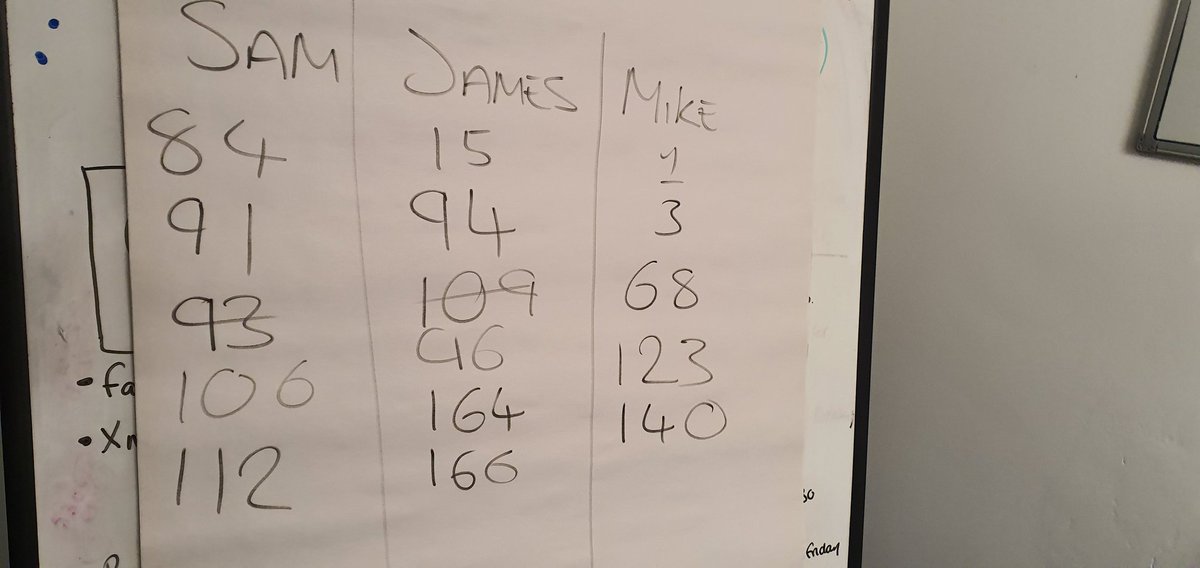 SAM
84
91
93
106
112
JAMES
15
94
109
96
164
166
MIKE
1
3
68
123
140
• fa
• Xm
so
Friday